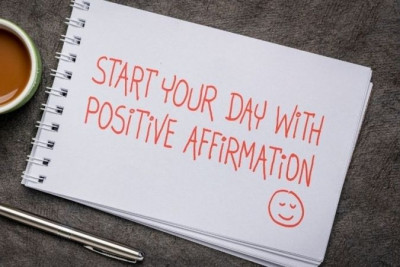 START YOUR DAY WITH
POSITIVE AFFIRMATION